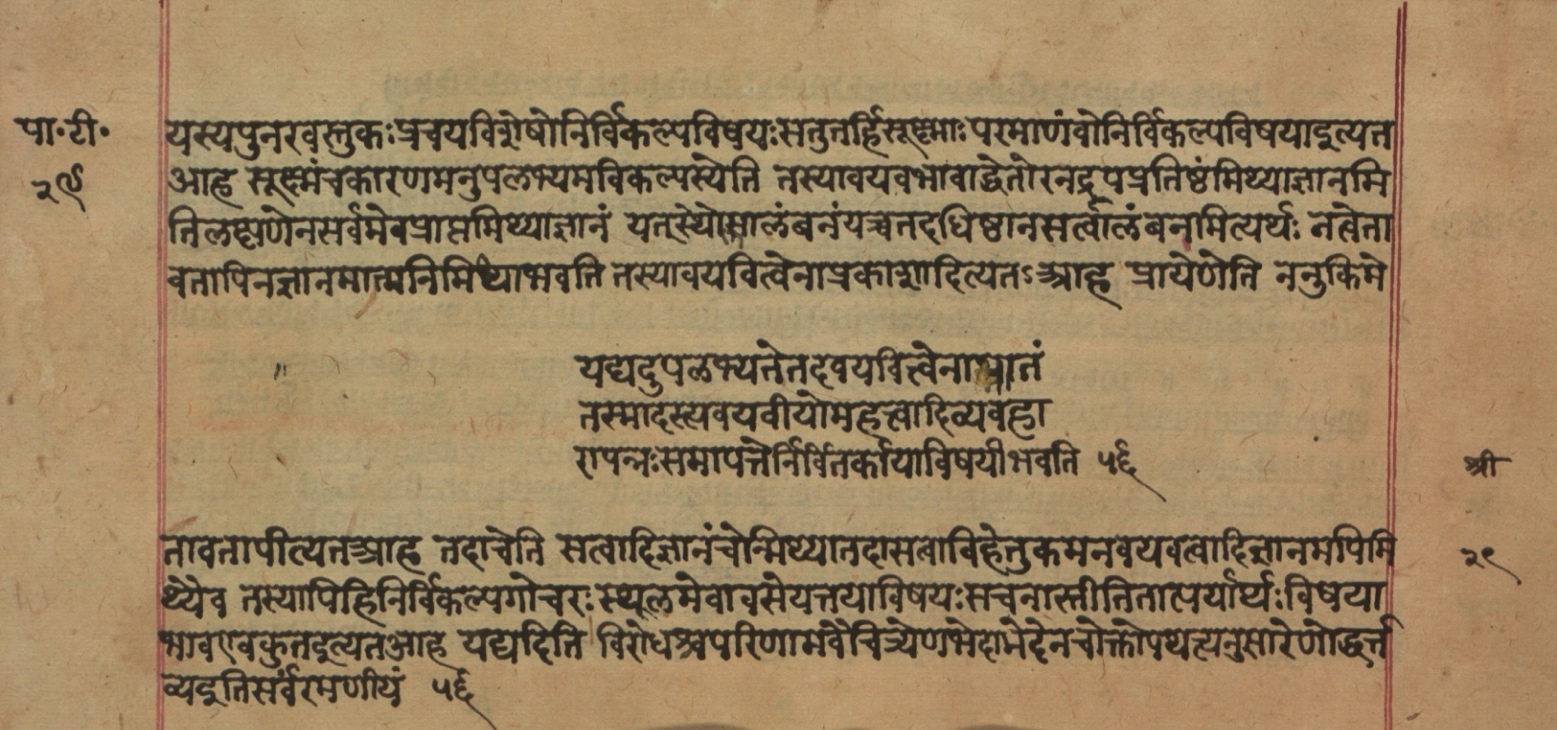 पा॰टी॰
२९
यस्यपुनरवस्तुकःप्रचयविशेषोनिर्विकल्पविषयःसतुतर्हिसूक्ष्माःपरमाणंवोनिर्विकल्पविषयाइत्यत
आह सूक्ष्मंचकारणमनुपलभ्यमविकल्पस्येति तस्यावयवभावाद्धेतोरनद्रूपप्रतिष्ठंमिथ्याज्ञानमि
तिलक्षणेनसर्वमेवप्राप्तमिथ्याज्ञानं यत्स्थेयोसालंबनंयच्चतदधिष्ठानसत्वालंबनमित्यर्थः नत्वेता
वतापिनज्ञानमात्मनिमिथ्याभवति तस्यावयवित्वेनाप्रकाशादित्यतःआह प्रायेणेति ननुकिमे
यद्यदुपलभ्यतेतदवयवित्वेनाघ्रातं
तस्मादस्त्यवयवीयोमहत्वादिव्यवहा
रापन्नःसमापत्तेर्निर्वितर्कायाविषयीभवति ५६
श्री
तावतापीत्यतआह तदाचेति सत्वादिज्ञानंचेन्मिथ्यातदासत्वाविहेतुकमनवयवत्वादिज्ञानमपिमि
२९
थ्यैव तस्यापिहिनिर्विकल्पगोचरःस्थूलमेवावसेयत्तयाविषयःसचनास्तीतितात्पर्यार्थःविषया
भावएवकुतइत्यतआह यद्यदिति विरोधश्चपरिणामवैचित्र्येणभेदाभेदेनचोक्तोपपत्त्यनुसारेणोद्धर्त्त
व्यइतिसर्वंरमणीयं ५६